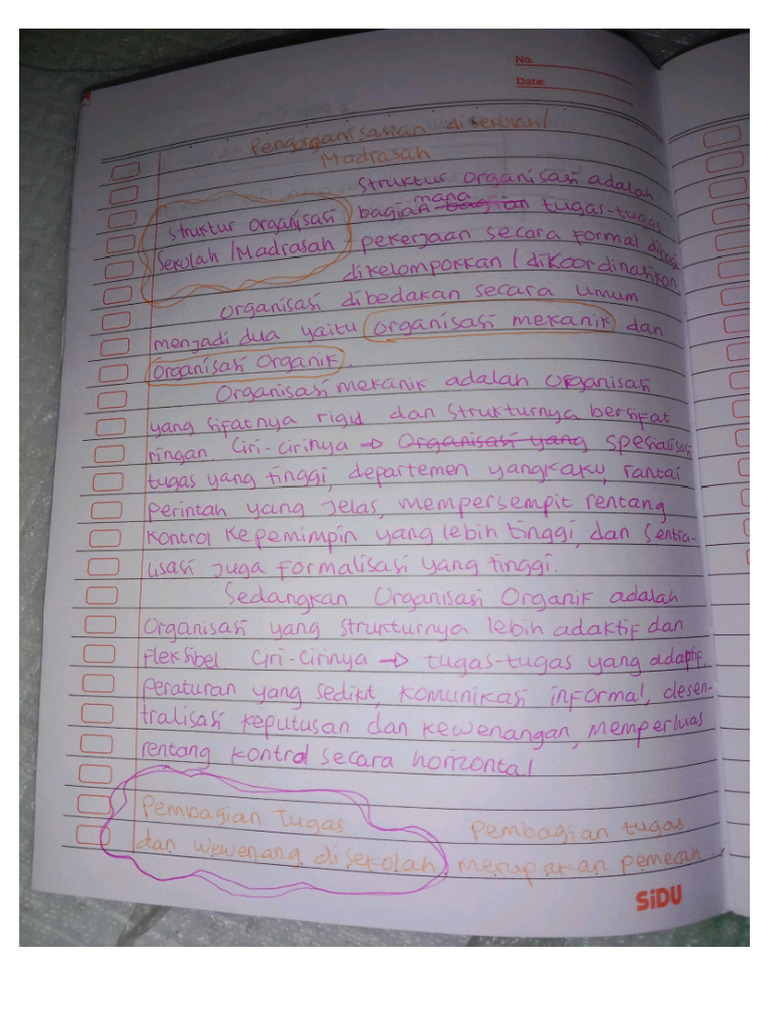 No.
Date:
Pengorganisasian disekolah/
Madrasah
Struktur Organisasi
Sekolah /Madrasah
Struktur Organisasi adalah
bagian mana bagian tugas-tugas
pekerjaan secara formal dibagi
dikelompokkan / dikoordinasikan
Organisasi dibedakan secara umum
menjadi dua yaitu Organisasi mekanik dan
Organisasi Organik.
Organisasi mekanik adalah Organisasi
yang sifatnya rigid dan strukturnya bersifat
ringan. Ciri-cirinya → Organisasi yang spesialisasi
tugas yang tinggi, departemen yangkaku, rantai
perintah yang jelas, mempersempit rentang
kontrol kepemimpin yang lebih tinggi, dan sentra-
lisasi juga formalisasi yang tinggi.
Sedangkan Organisasi Organik adalah
Organisasi yang strukturnya lebih adaktif dan
fleksibel Ciri-Cirinya → tugas-tugas yang adaptif,
peraturan yang sedikt, komunikasi informal, desen-
tralisasi keputusan dan kewenangan, memperluas
rentang kontrol secara horizontal
Pembagian Tugas
dan wewenang disekolah
Pembagian tugas
merupakan pemecah
SiDU